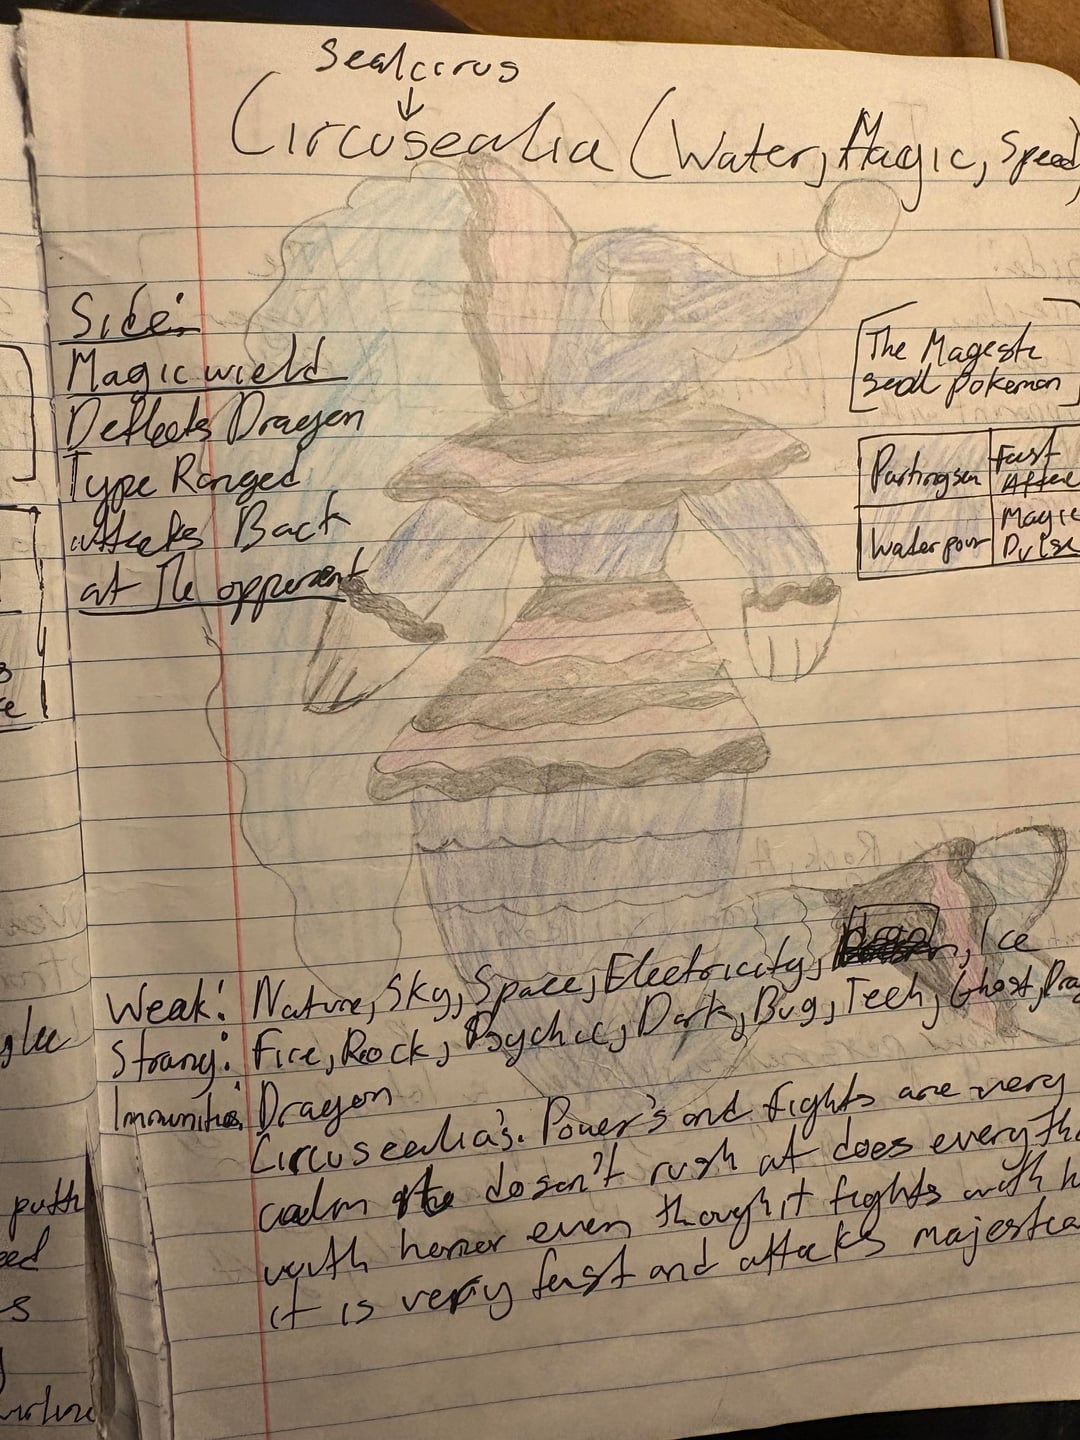 Sealcirus
↓
Circusealia (Water, Magic, Speed)
Side:
Magic wield
Deflects Dragon
Type Ranged
attacks Back
at The opponent
[The Mageste
seal Pokemon]
Fast
Waterpour Magic
Weak: Nature, Sky, Space, Electricity, Ice
Strong: Fire, Rock, Psychic, Dark, Bug, Tech, Ghost, Dra
Immunities: Dragon
Circusealia's. Power's and fights are very
calm doesn't rush at does everyth
with honor even though it fights with h
it is very fast and attacks majestica